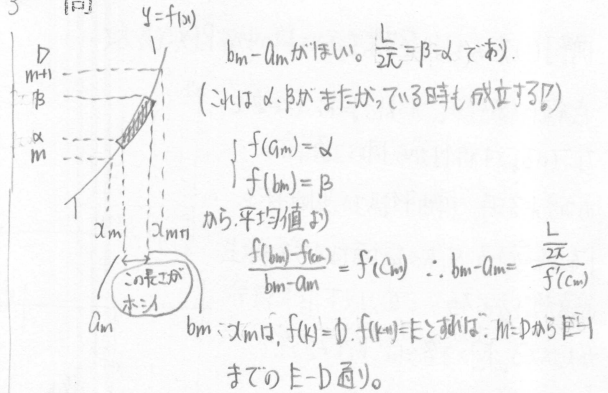 3 [同]
y=f(x)
D
m+1
β
α
m
x_m x_{m+1}
この長さが
ホシイ
a_m b_m
b_m-a_mがほしい。L/2π=β-αであり.
(これはα.βがまたがっている時も成立する!?)
{f(a_m)=α
f(b_m)=β
から.平均値より
f(b_m)-f(a_m)/b_m-a_m=f'(c_m) ∴b_m-a_m=L/2π/f'(c_m)
x_mは, f(k)=D.f(k+1)=Eとすれば. m=DからE-1
までのE-D通り。